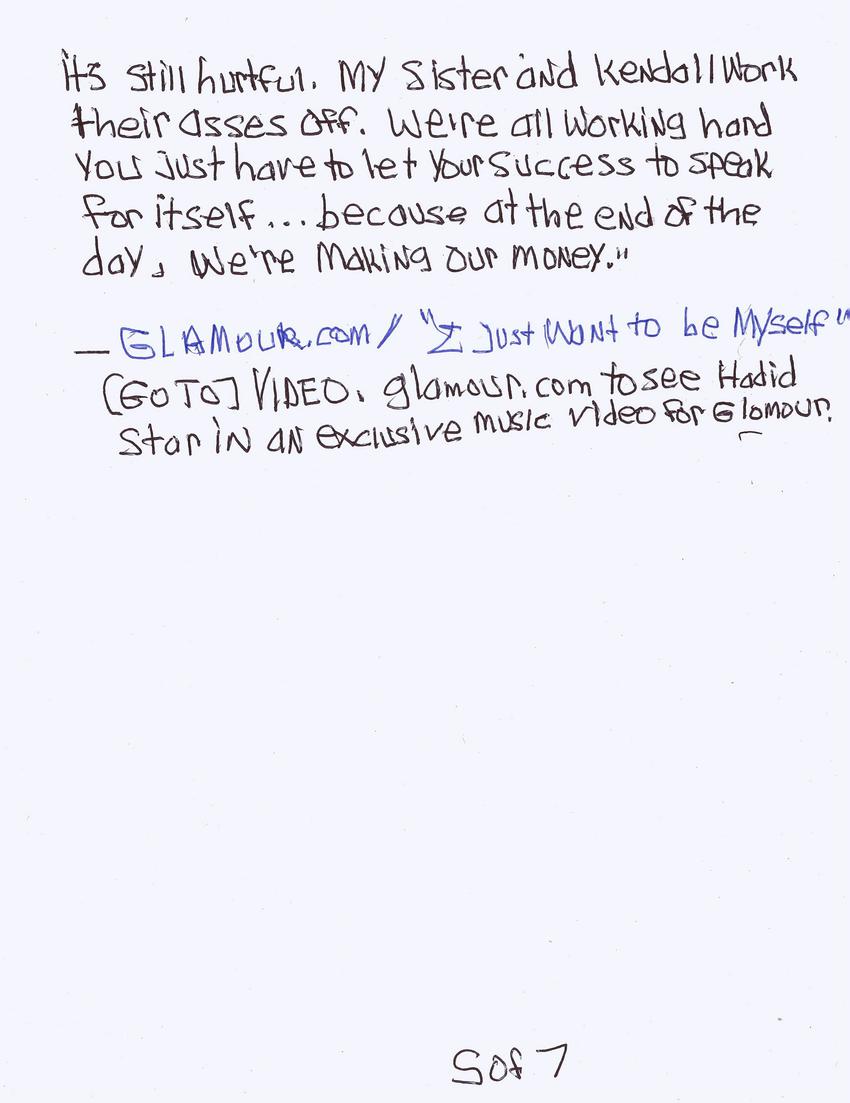 its still hurtful. My Sister and Kendall Work
their asses off. We're all working hard
you just have to let your success to speak
for itself... because at the end of the
day, we're making our money."
— GLAMOUR.com/ "I Just Want to be Myself"
[GO TO] VIDEO. glamour.com to see Hadid
Star in an exclusive music video for Glamour.
5 of 7